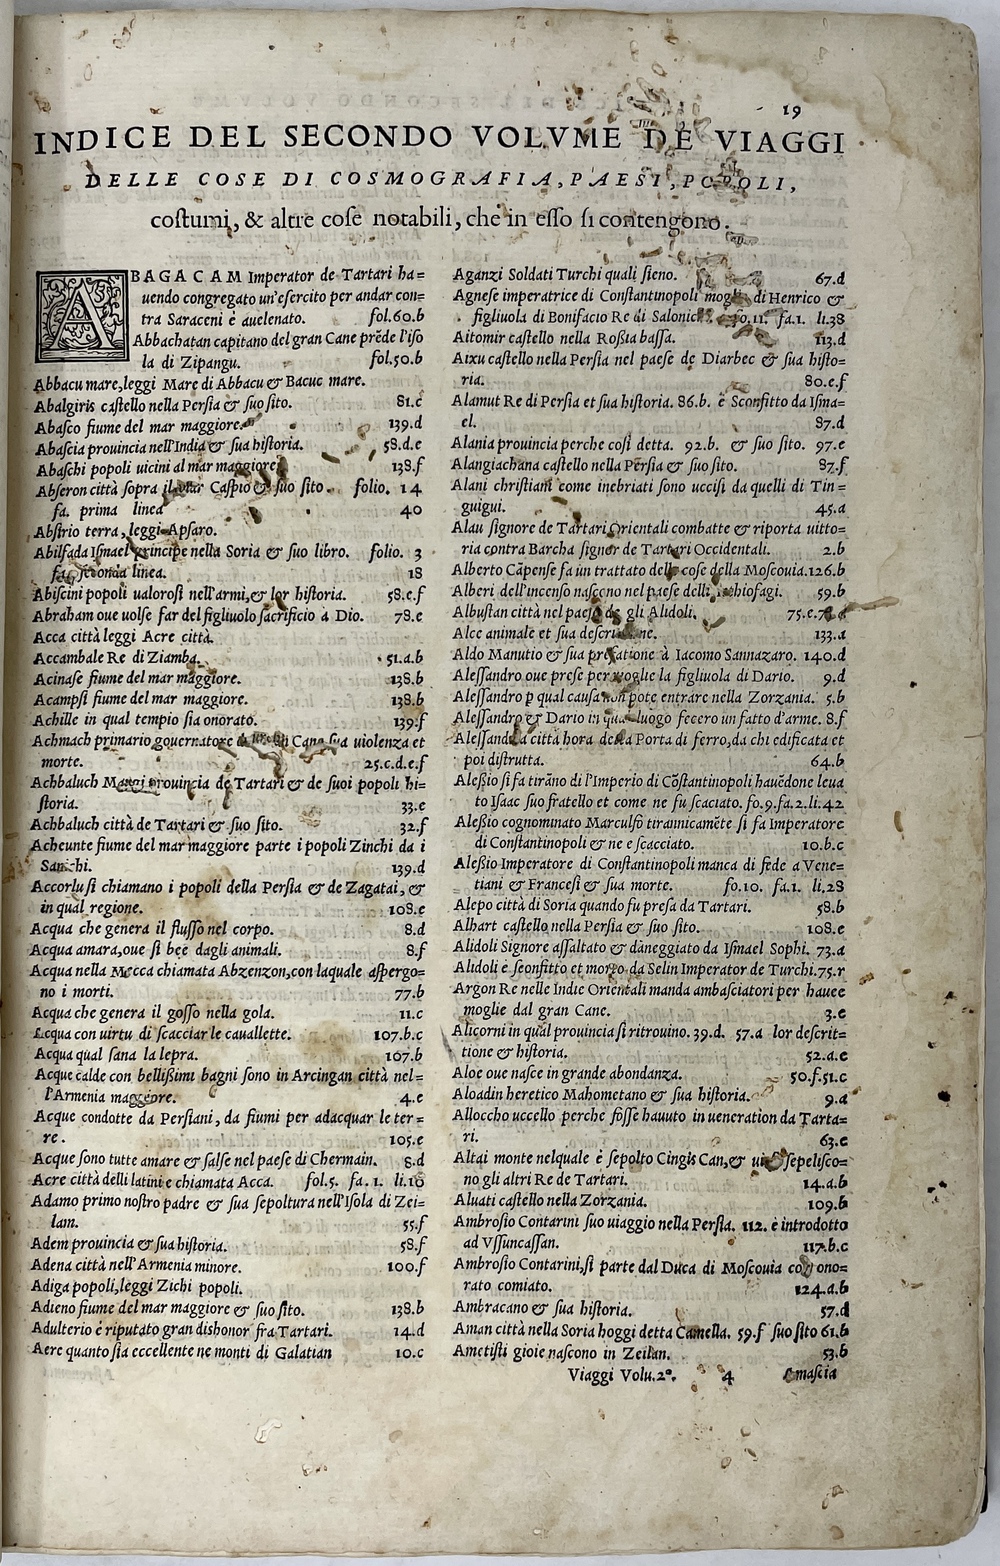 19
INDICE DEL SECONDO VOLVME DE VIAGGI
DELLE COSE DI COSMOGRAFIA, PAESI, POPOLI,
costumi, & altre cose notabili, che in esso si contengono.
ABAGACAM Imperator de Tartari ha=
uendo congregato un'esercito per andar con=
tra Saraceni è auelenato. fol.60.b
Abbachatan capitano del gran Cane prẽde l'iso
la di Zipangu. fol.50.b
Abbacu mare, leggi Mare di Abbacu & Bacuc mare.
Abalgiris castello nella Persia & suo sito. 81.c
Abasco fiume del mar maggiore. 139.d
Abascia prouincia nell'India & sua historia. 58.d.e
Abaschi popoli uicini al mar maggiore. 138.f
Abseron città sopra il Mar Caspio & suo sito. folio. 14
fa. prima linea 40
Absirio terra, leggi Apsaro.
Abilfada Ismael principe nella Soria & suo libro. folio. 3
fa. seconda linea. 18
Abiscini popoli ualorosi nell'armi, & lor historia. 58.e.f
Abraham oue uolse far del figliuolo sacrificio à Dio. 78.e
Acca città leggi Acre città.
Accambale Re di Ziamba. 51.a.b
Acinase fiume del mar maggiore. 138.b
Acampsi fiume del mar maggiore. 138.b
Achille in qual tempio sia onorato. 139.f
Achmach primario gouernatore Cane sua uiolenza et
morte. 25.c.d.e.f
Achbaluch Mangi prouincia de Tartari & de suoi popoli hi=
storia. 33.e
Achbaluch città de Tartari & suo sito. 32.f
Acheunte fiume del mar maggiore parte i popoli Zinchi da i
Sanichi. 139.d
Accorlu si chiamano i popoli della Persia & de Zagatai, &
in qual regione. 108.e
Acqua che genera il flusso nel corpo. 8.d
Acqua amara, oue si bee dagli animali. 8.f
Acqua nella Mecca chiamata Abzenzon, con laquale aspergo=
no i morti. 77.b
Acqua che genera il gosso nella gola. 11.c
Acqua con uirtu di scacciar le cauallette. 107.b.c
Acqua qual sana la lepra. 107.b
Acque calde con bellißimi bagni sono in Arcingan città nel=
l'Armenia maggiore. 4.e
Acque condotte da Persiani, da fiumi per adacquar le ter=
re. 105.e
Acque sono tutte amare & salse nel paese di Chermain. 8.d
Acre città delli latini e chiamata Acca. fol.5. fa.1. li.10
Adamo primo nostro padre & sua sepoltura nell'Isola di Zei=
lam. 55.f
Adem prouincia & sua historia. 58.f
Adena città nell'Armenia minore. 100.f
Adiga popoli, leggi Zichi popoli.
Adieno fiume del mar maggiore & suo sito. 138.b
Adulterio è riputato gran dishonor fra Tartari. 14.d
Aere quanto sia eccellente ne monti di Galatian 10.c
Aganzi Soldati Turchi quali sieno. 67.d
Agnese imperatrice di Constantinopoli moglie di Henrico &
figliuola di Bonifacio Re di Salonich. fo.11. fa.1. li.38
Aitomir castello nella Roßia bassa. 113.d
Aixu castello nella Persia nel paese de Diarbec & sua histo=
ria. 80.e.f
Alamut Re di Persia et sua historia. 86.b. è Sconfitto da Isma=
el. 87.d
Alania prouincia perche cosi detta. 92.b. & suo sito. 97.e
Alangiachana castello nella Persia & suo sito. 87.f
Alani christiani come inebriati sono uccisi da quelli di Tin=
guigui. 45.a
Alau signore de Tartari Orientali combatte & riporta uitto=
ria contra Barcha signor de Tartari Occidentali. 2.b
Alberto Cãpense fa un trattato delle cose della Moscouia. 126.b
Alberi dell'incenso nascono nel paese delli Ichiofagi. 59.b
Albustan città nel paese de gli Alidoli. 75.e.
Alce animale et sua descrittione. 133.a
Aldo Manutio & sua prefatione à Iacomo Sannazaro. 140.d
Alessandro oue prese per moglie la figliuola di Dario. 9.d
Alessandro p qual causa non pote entrare nella Zorzania. 5.b
Alessandro & Dario in qual luogo fecero un fatto d'arme. 8.f
Alessandria città hora detta Porta di ferro, da chi edificata et
poi distrutta. 64.b
Aleßio si fa tirãno di l'Imperio di Cõstantinopoli hauẽdone leua
to Isaac suo fratello et come ne fu scaciato. fo.9.fa.2.li.42
Aleßio cognominato Marculfo tirannicamẽte si fa Imperatore
di Constantinopoli & ne e scacciato. 10.b.c
Aleßio Imperatore di Constantinopoli manca di fede a Vene=
tiani & Francesi & sua morte. fo.10. fa.1. li.28
Alepo città di Soria quando fu presa da Tartari. 58.b
Alhart castello nella Persia & suo sito. 108.e
Alidoli Signore assaltato & dãneggiato da Ismael Sophi. 73.a
Alidoli è sconfitto et morto da Selin Imperator de Turchi. 75.r
Argon Re nelle Indie Orientali manda ambasciatori per hauee
moglie dal gran Cane. 3.e
Alicorni in qual prouincia si ritrouino. 39.d. 57.a lor descrit=
tione & historia. 52.a.e
Aloe oue nasce in grande abondanza. 50.f.51.c
Aloadin heretico Mahometano & sua historia. 9.a
Alloccho uccello perche fosse hauuto in ueneration da Tarta=
ri. 63.c
Altai monte nelquale è sepolto Cingis Can, & ui sepelisco=
no gli altri Re de Tartari. 14.a.b
Aluati castello nella Zorzania. 109.b
Ambrosio Contarini suo uiaggio nella Persia. 112. è introdotto
ad Vssuncassan. 117.b.c
Ambrosio Contarini, si parte dal Duca di Moscouia con ono=
rato comiato. 124.a.b
Ambracano & sua historia. 57.d
Aman città nella Soria hoggi detta Camella. 59.f suo sito 61.b
Ametisti gioie nascono in Zeilan. 53.b
Viaggi Volu. 2º. 4 Amascia